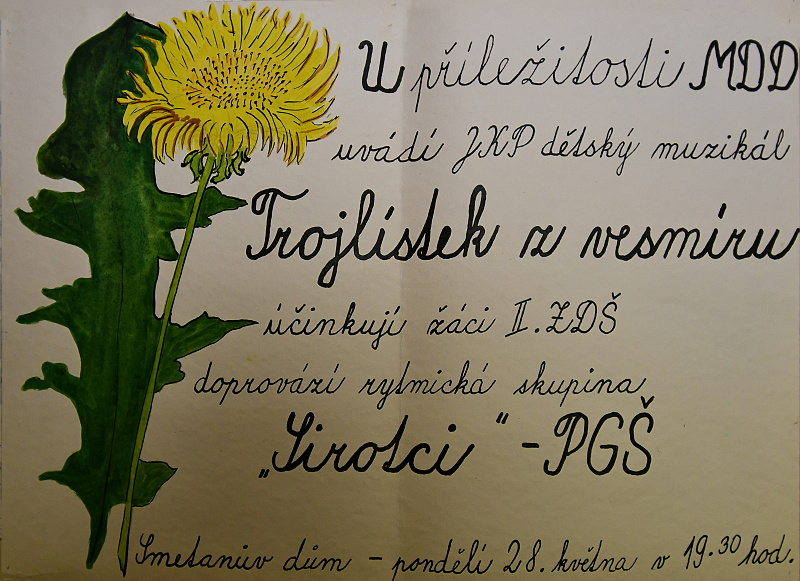 U příležitosti MDD
uvádí JKP dětský muzikál
Trojlístek z vesmíru
účinkují žáci II. ZDŠ
doprovází rytmická skupina
„Sirotci" - PGŠ
Smetanův dům - pondělí 28. května v 19.30 hod.